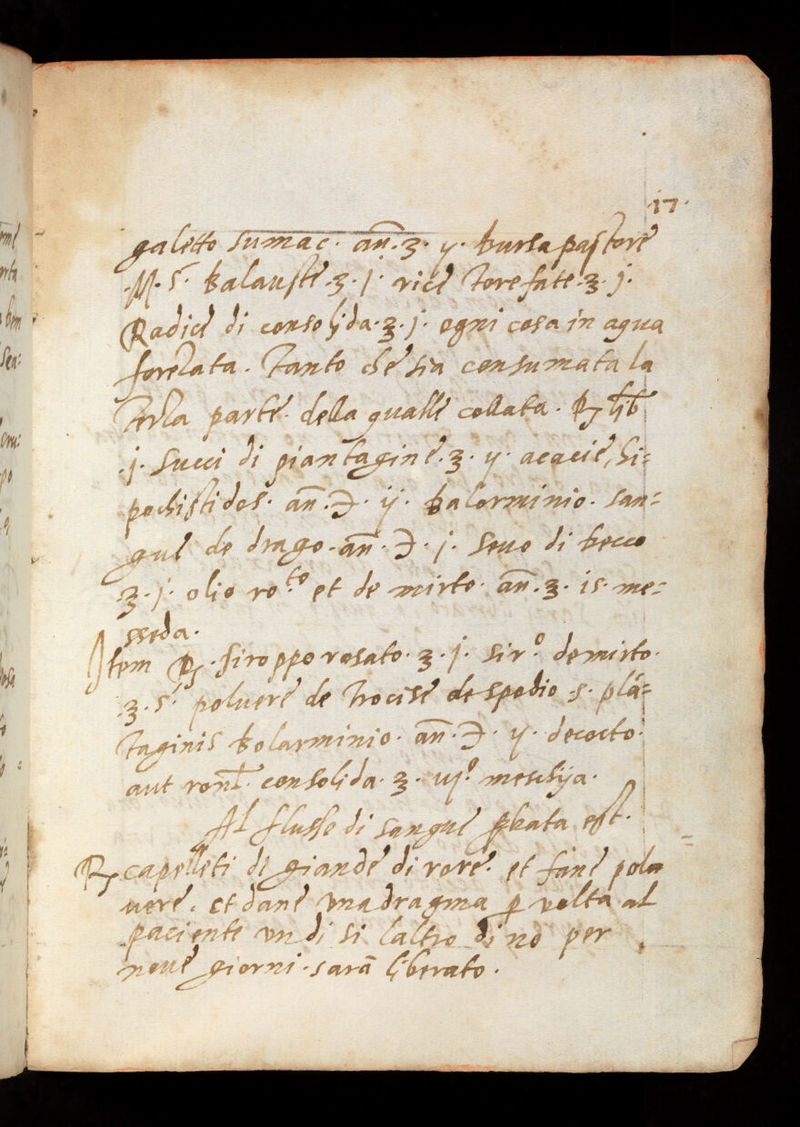 17
galetto sumac. añ. ʒ. ij. bursa pastore
.M. s. balauste. ʒ. j. rice torefate. ʒ. j.
Radice di consolida. ʒ. j. ogni cosa in aqua
ferrata. tanto che sia consumata la
terza parte. della qualle collata. ℞ lib
.j. succi di piantagine. ʒ. ij. acacie, hi-
pochistidos. añ. ℈. ij. bolorminio. san-
gue de drago. añ. ℈. j. seuo di becco
ʒ. j. olio ro.to et de mirto. añ. ʒ. is. me-
sseda.
Item ℞. siroppo rosato. ʒ. j. sir.o de mirto.
.ʒ. s. poluere de trocise de spodio .s. plā-
taginis bolarminio. añ. ℈. ij. decocto.
aut consolida. ʒ. vj.o mescsija.
Al flusso di sangue pbata est.
℞ capelleti de giande di rore. et fane polu
uere. et dane vna dragma p volta al
paciente vn di si laltro di no per
noue giorni. sarā liberato.